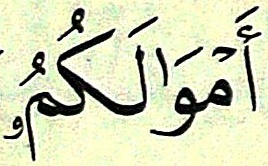 أَمْوَٰلَكُمُۥ